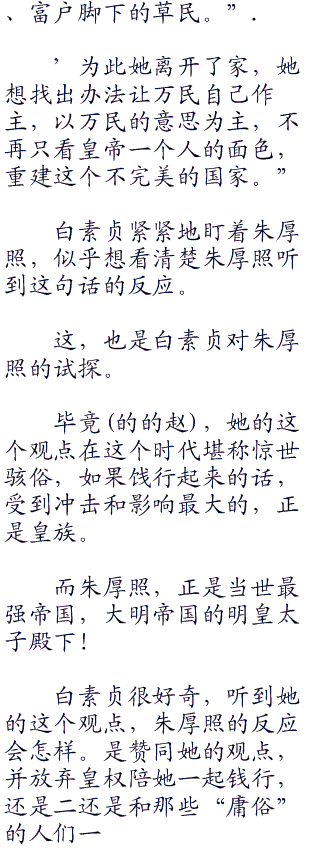 、富户脚下的草民。”.
’为此她离开了家，她
想找出办法让万民自己作
主，以万民的意思为主，不
再只看皇帝一个人的面色，
重建这个不完美的国家。”
白素贞紧紧地盯着朱厚
照，似乎想看清楚朱厚照听
到这句话的反应。
这，也是白素贞对朱厚
照的试探。
毕竟(的的赵)，她的这
个观点在这个时代堪称惊世
骇俗，如果饯行起来的话，
受到冲击和影响最大的，正
是皇族。
而朱厚照，正是当世最
强帝国，大明帝国的明皇太
子殿下！
白素贞很好奇，听到她
的这个观点，朱厚照的反应
会怎样。是赞同她的观点，
并放弃皇权陪她一起钱行，
还是二还是和那些“庸俗”
的人们一